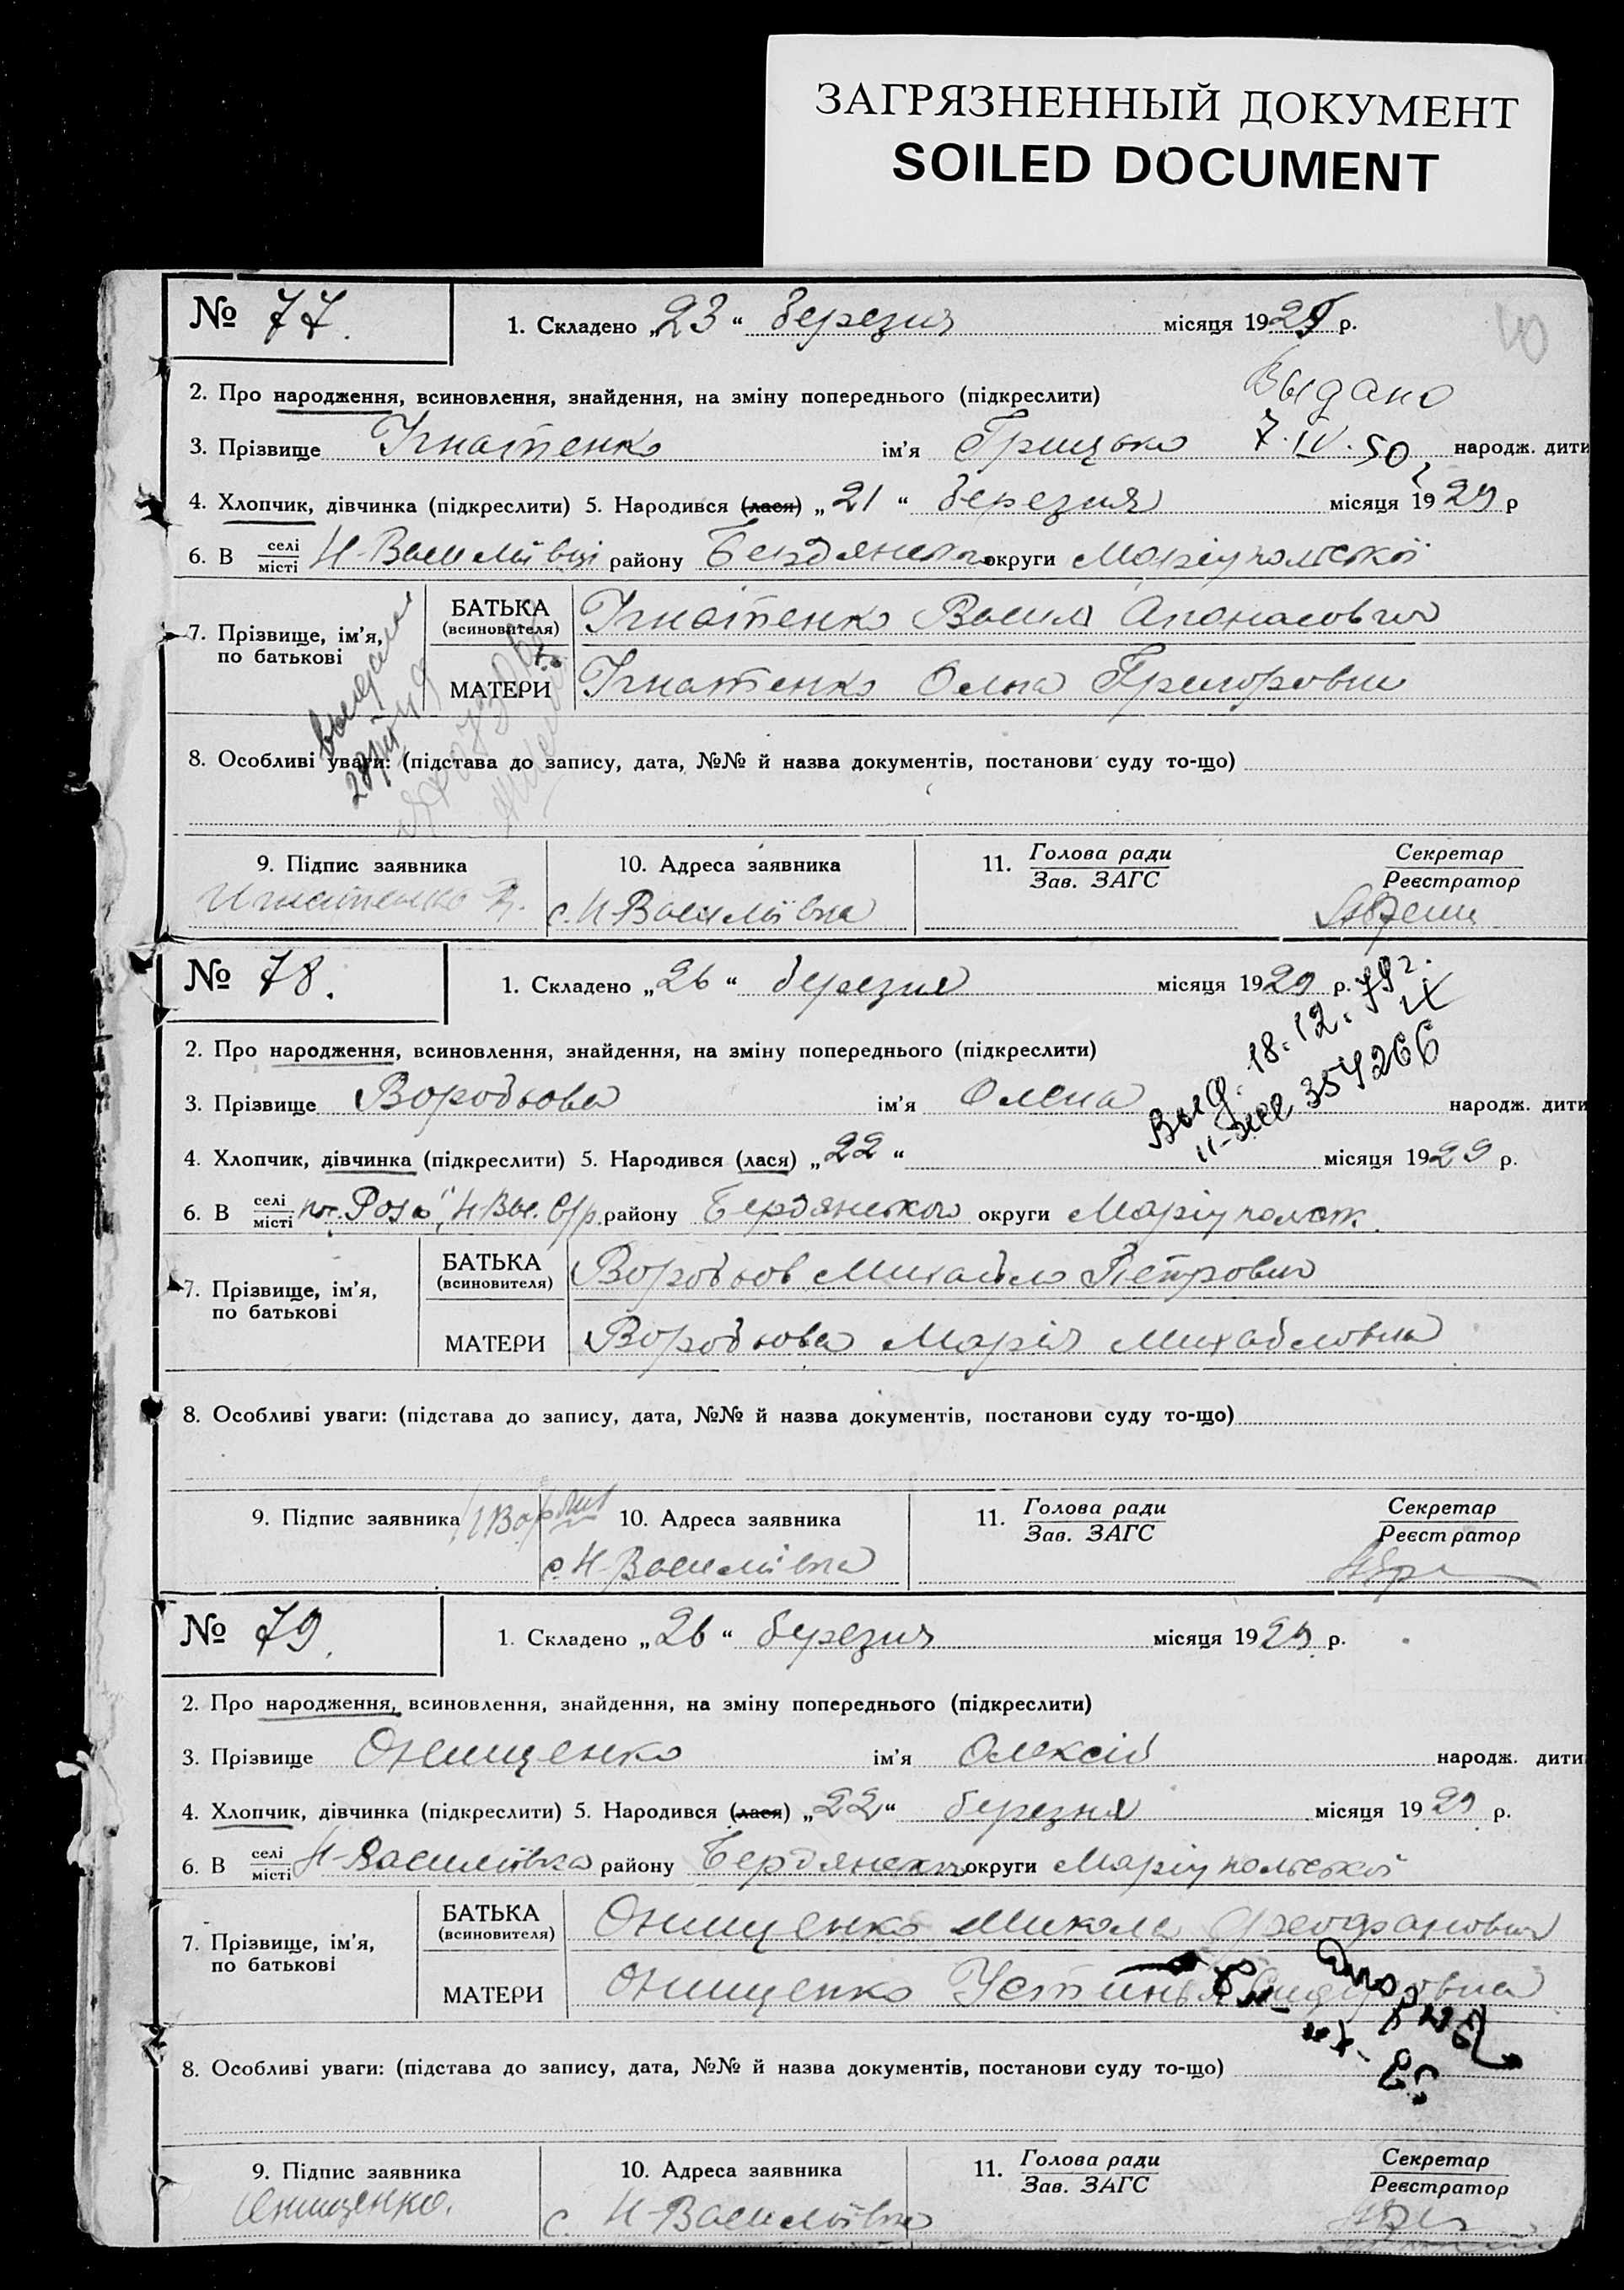 ЗАГРЯЗНЕННЫЙ ДОКУМЕНТ
SOILED DOCUMENT
№ 77. 1. Складено „23“ березня місяця 1929 р.
40
2. Про народження, всиновлення, знайдення, на зміну попереднього (підкреслити)
Выдано
7.IV.50
3. Прізвище Ігнатенко ім'я Грицько народж. дити
4. Хлопчик, дівчинка (підкреслити) 5. Народився (лася) „21“ березня місяця 1929 р
6. В селі місті Н-Василівці району Бердянського округи Маріупольської
7. Прізвище, ім'я, по батькові
БАТЬКА (всиновителя) Ігнатенко Васил Апанасович
МАТЕРИ Ігнатенко Ольга Григоровна
8. Особливі уваги: (підстава до запису, дата, №№ й назва документів, постанови суду то-що)
9. Підпис заявника 10. Адреса заявника 11. Голова ради Зав. ЗАГС Секретар Реєстратор
Игнатенко В. с. Н-Василївка
№ 78. 1. Складено „26“ березня місяця 1929 р.
Выд. 18.12.79г.
354266
2. Про народження, всиновлення, знайдення, на зміну попереднього (підкреслити)
3. Прізвище Воробьова ім'я Олена народж. дити
4. Хлопчик, дівчинка (підкреслити) 5. Народився (лася) „22“ місяця 1929 р.
6. В селі місті "Роза", Н-Вас. С/р. району Бердянського округи Маріупольск.
7. Прізвище, ім'я, по батькові
БАТЬКА (всиновителя) Воробьов Михайло Петрович
МАТЕРИ Воробьова Марія Михайловна
8. Особливі уваги: (підстава до запису, дата, №№ й назва документів, постанови суду то-що)
9. Підпис заявника 10. Адреса заявника 11. Голова ради Зав. ЗАГС Секретар Реєстратор
с. Н-Василівка
№ 79. 1. Складено „26“ березня місяця 1929 р.
2. Про народження, всиновлення, знайдення, на зміну попереднього (підкреслити)
3. Прізвище Онищенко ім'я Олексій народж. дити
4. Хлопчик, дівчинка (підкреслити) 5. Народився (лася) „22“ березня місяця 1929 р.
6. В селі місті Н-Василівка району Бердянського округи Маріупольської
7. Прізвище, ім'я, по батькові
БАТЬКА (всиновителя) Онищенко Микола Феофанович
МАТЕРИ Онищенко Устинья
8. Особливі уваги: (підстава до запису, дата, №№ й назва документів, постанови суду то-що)
9. Підпис заявника 10. Адреса заявника 11. Голова ради Зав. ЗАГС Секретар Реєстратор
Онищенко. с. Н-Василівка